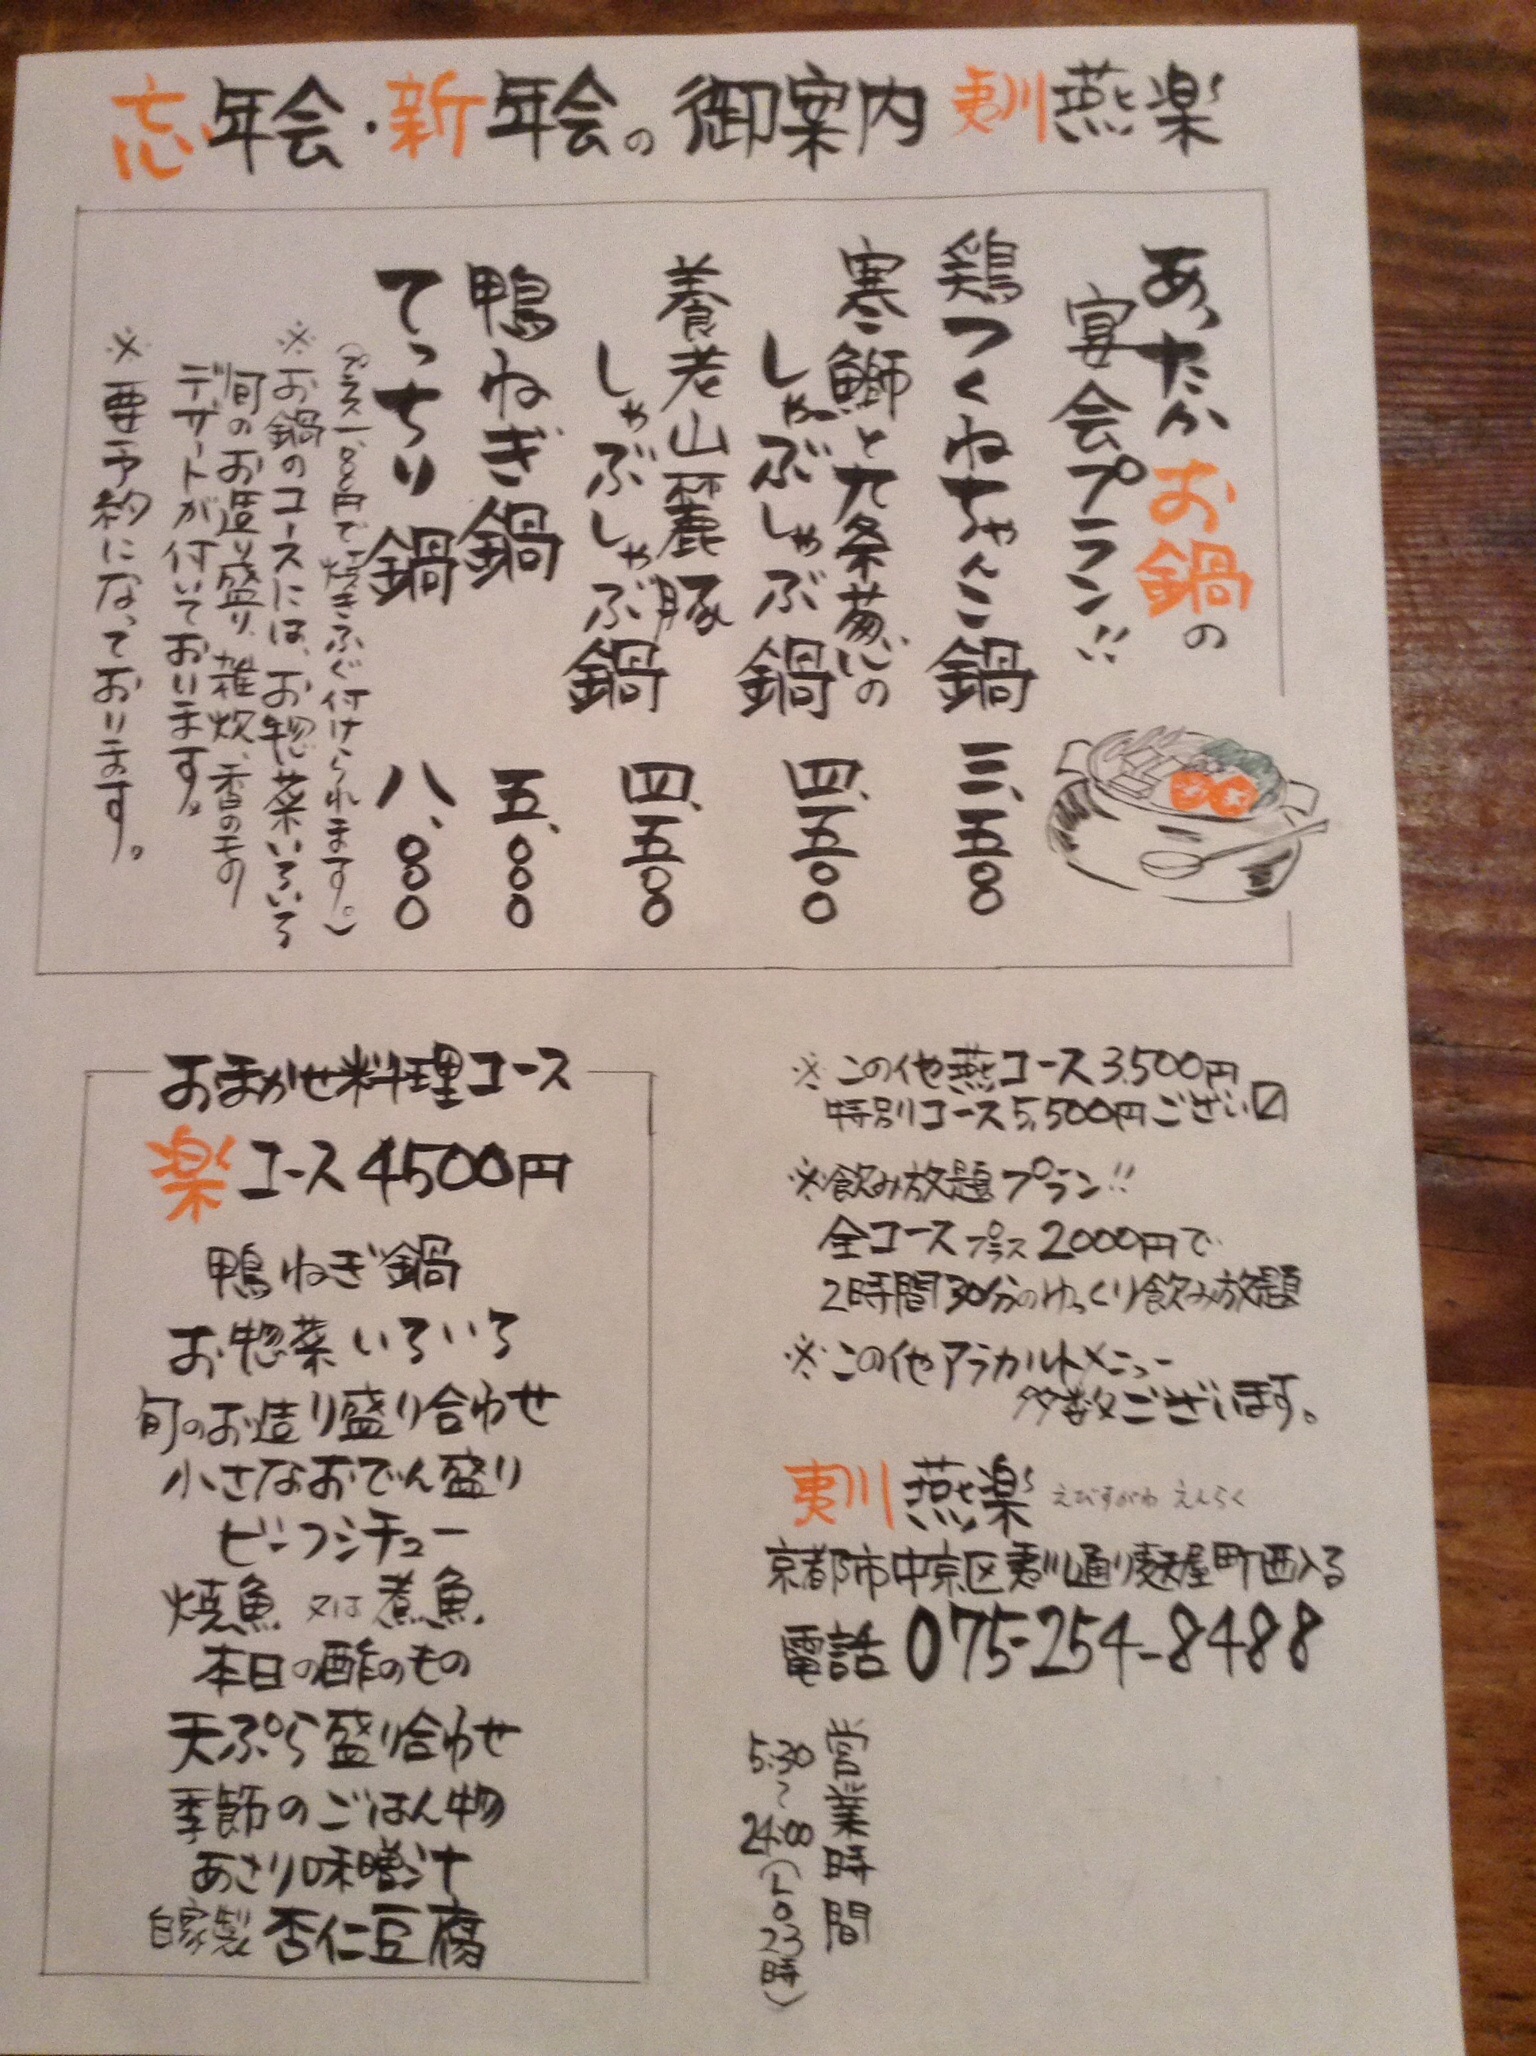 忘年会・新年会の御案内 夷川燕楽
あったかお鍋の
宴会プラン!!
鶏つくねちゃんこ鍋 三、五〇〇
寒鰤と九条葱の
しゃぶしゃぶ鍋 四、五〇〇
養老山麓豚
しゃぶしゃぶ鍋 四、五〇〇
鴨ねぎ鍋 五、〇〇〇
てっちり鍋 八、〇〇〇
(プラス一、〇〇〇円で焼きふぐ付けられます。)
※お鍋のコースには、お惣菜いろいろ
旬のお造り盛り、雑炊、香のもの
デザートが付いております。
※要予約になっております。
おまかせ料理コース
楽コース4500円
鴨ねぎ鍋
お惣菜いろいろ
旬のお造り盛り合わせ
小さなおでん盛り
ビーフシチュー
焼魚 又は 煮魚
本日の酢のもの
天ぷら盛り合わせ
季節のごはん物
あさり味噌汁
自家製 杏仁豆腐
※この他燕コース3,500円
特別コース5,500円ござい〼
※飲み放題プラン!!
全コースプラス2000円で
2時間30分のゆっくり飲み放題
※この他アラカルトメニュー
多数ございます。
夷川 燕楽 えびすがわ えんらく
京都市中京区夷川通り麩屋町西入る
電話 075-254-8488
営業時間
5:30〜24:00(LO23時)